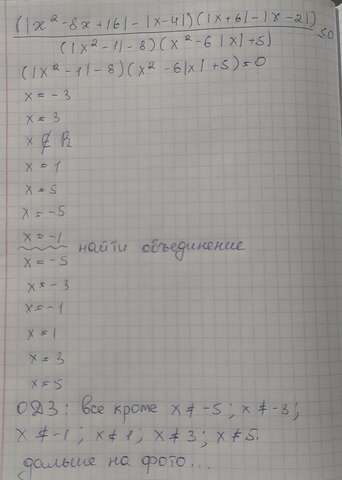 (|x²-8x+16|-|x-4|)(|x+6|-|x-2|)
(|x²-1|-8)(x²-6|x|+5) ≤0
(|x²-1|-8)(x²-6|x|+5)=0
x=-3
x=3
x∉R
x=1
x=5
x=-5
x=-1 найти объединение
x=-5
x=-3
x=-1
x=1
x=3
x=5
ОДЗ: все кроме x≠-5; x≠-3;
x≠-1; x≠1; x≠3; x≠5.
дальше на фото...